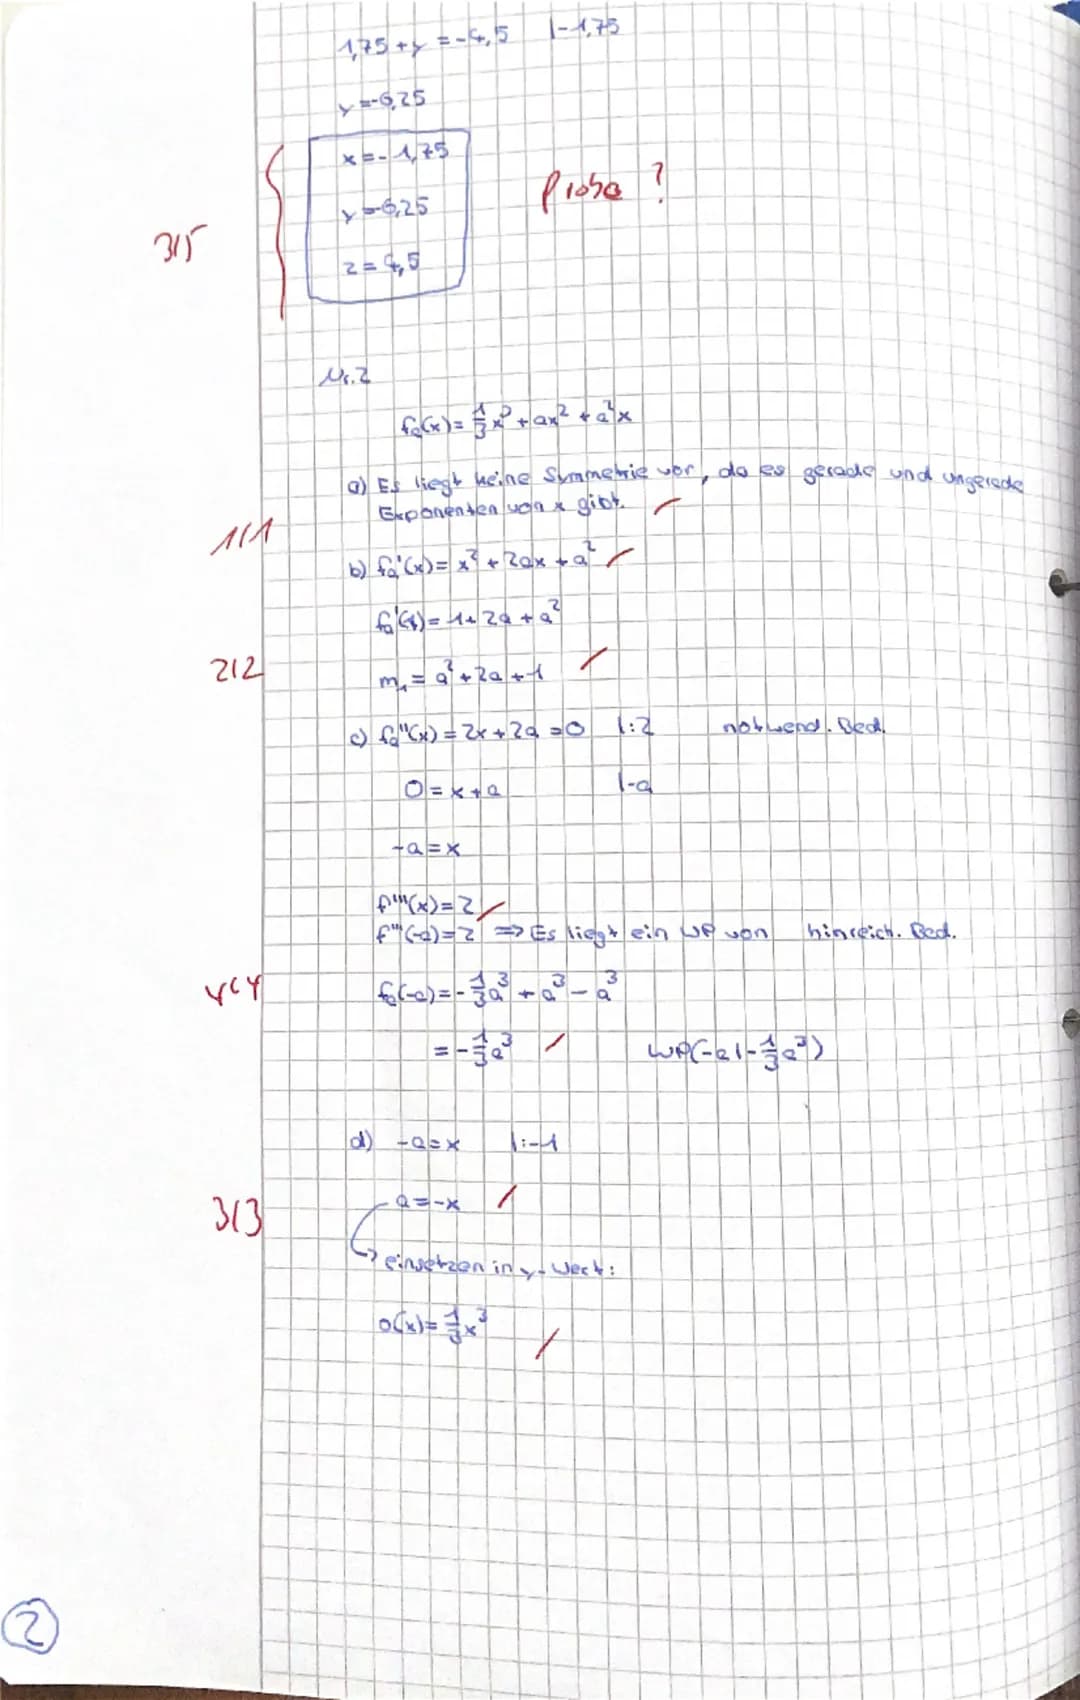 1,75 + y = -4,5 |-1,75
y = -6,25
x = -1,75
Probe ?
y = -6,25
3/5
z = 4,5
Nr. 2
fₐ(x) = 1/3 x³ + ax² + a²x
a) Es liegt keine Symmetrie vor, da es gerade und ungerade
Exponenten von x gibt.
1/1
b) fₐ'(x) = x² + 2ax + a²
fₐ'(1) = 1 + 2a + a²
2/2
m₁ = a² + 2a + 1
c) fₐ''(x) = 2x + 2a = 0 |:2 notwend. Bed.
0 = x + a |-a
-a = x
f'''(x) = 2
f'''(-a) = 2 => Es liegt ein WP von hinreich. Bed.
4/4
fₐ(-a) = -1/3 a³ + a³ - a³
= -1/3 a³ WP(-a|-1/3 a³)
d) -a = x |:-1
3/3
a = -x
einsetzen in y-Wert:
o(x) = 1/3 x³
2